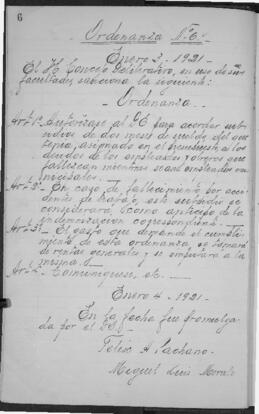 6
Ordenanza Nº 6.
Enero 3 - 1921 -
El H. Concejo Deliberativo, en uso de sus
facultades, sanciona la siguiente:
- Ordenanza -
Art. 1º Autorízase al P.E. para acordar sub-
sidios de dos meses de sueldo, del que
tenía, asignado en el presupuesto a los
deudos de los empleados y obreros que
fallezcan mientras sean empleados mu-
nicipales. -
Art. 2º - En caso de fallecimiento por acci-
dentes de trabajo, este subsidio se
considerará como anticipo de la
indemnización correspondiente. -
Art. 3º - El gasto que demande el cumpli-
miento de esta ordenanza, se tomará
de rentas generales y se imputará a la
misma. -
Art. 4º - Comuníquese, etc. -
Enero 4 - 1921 -
En la fecha fue promulga-
da por el P.E.
Felix A Pachano.
Miguel Luis